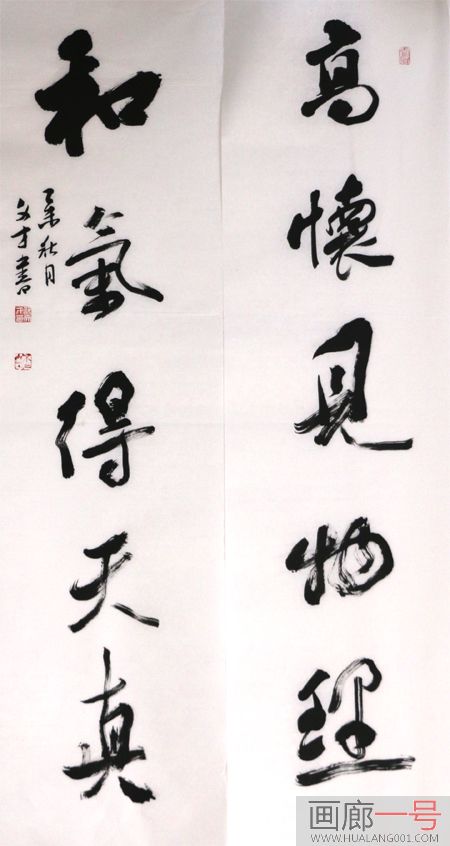 高懷見物理
和氣得天真
乙未秋月
文才書
画廊一号
WWW.HUALANG001.COM